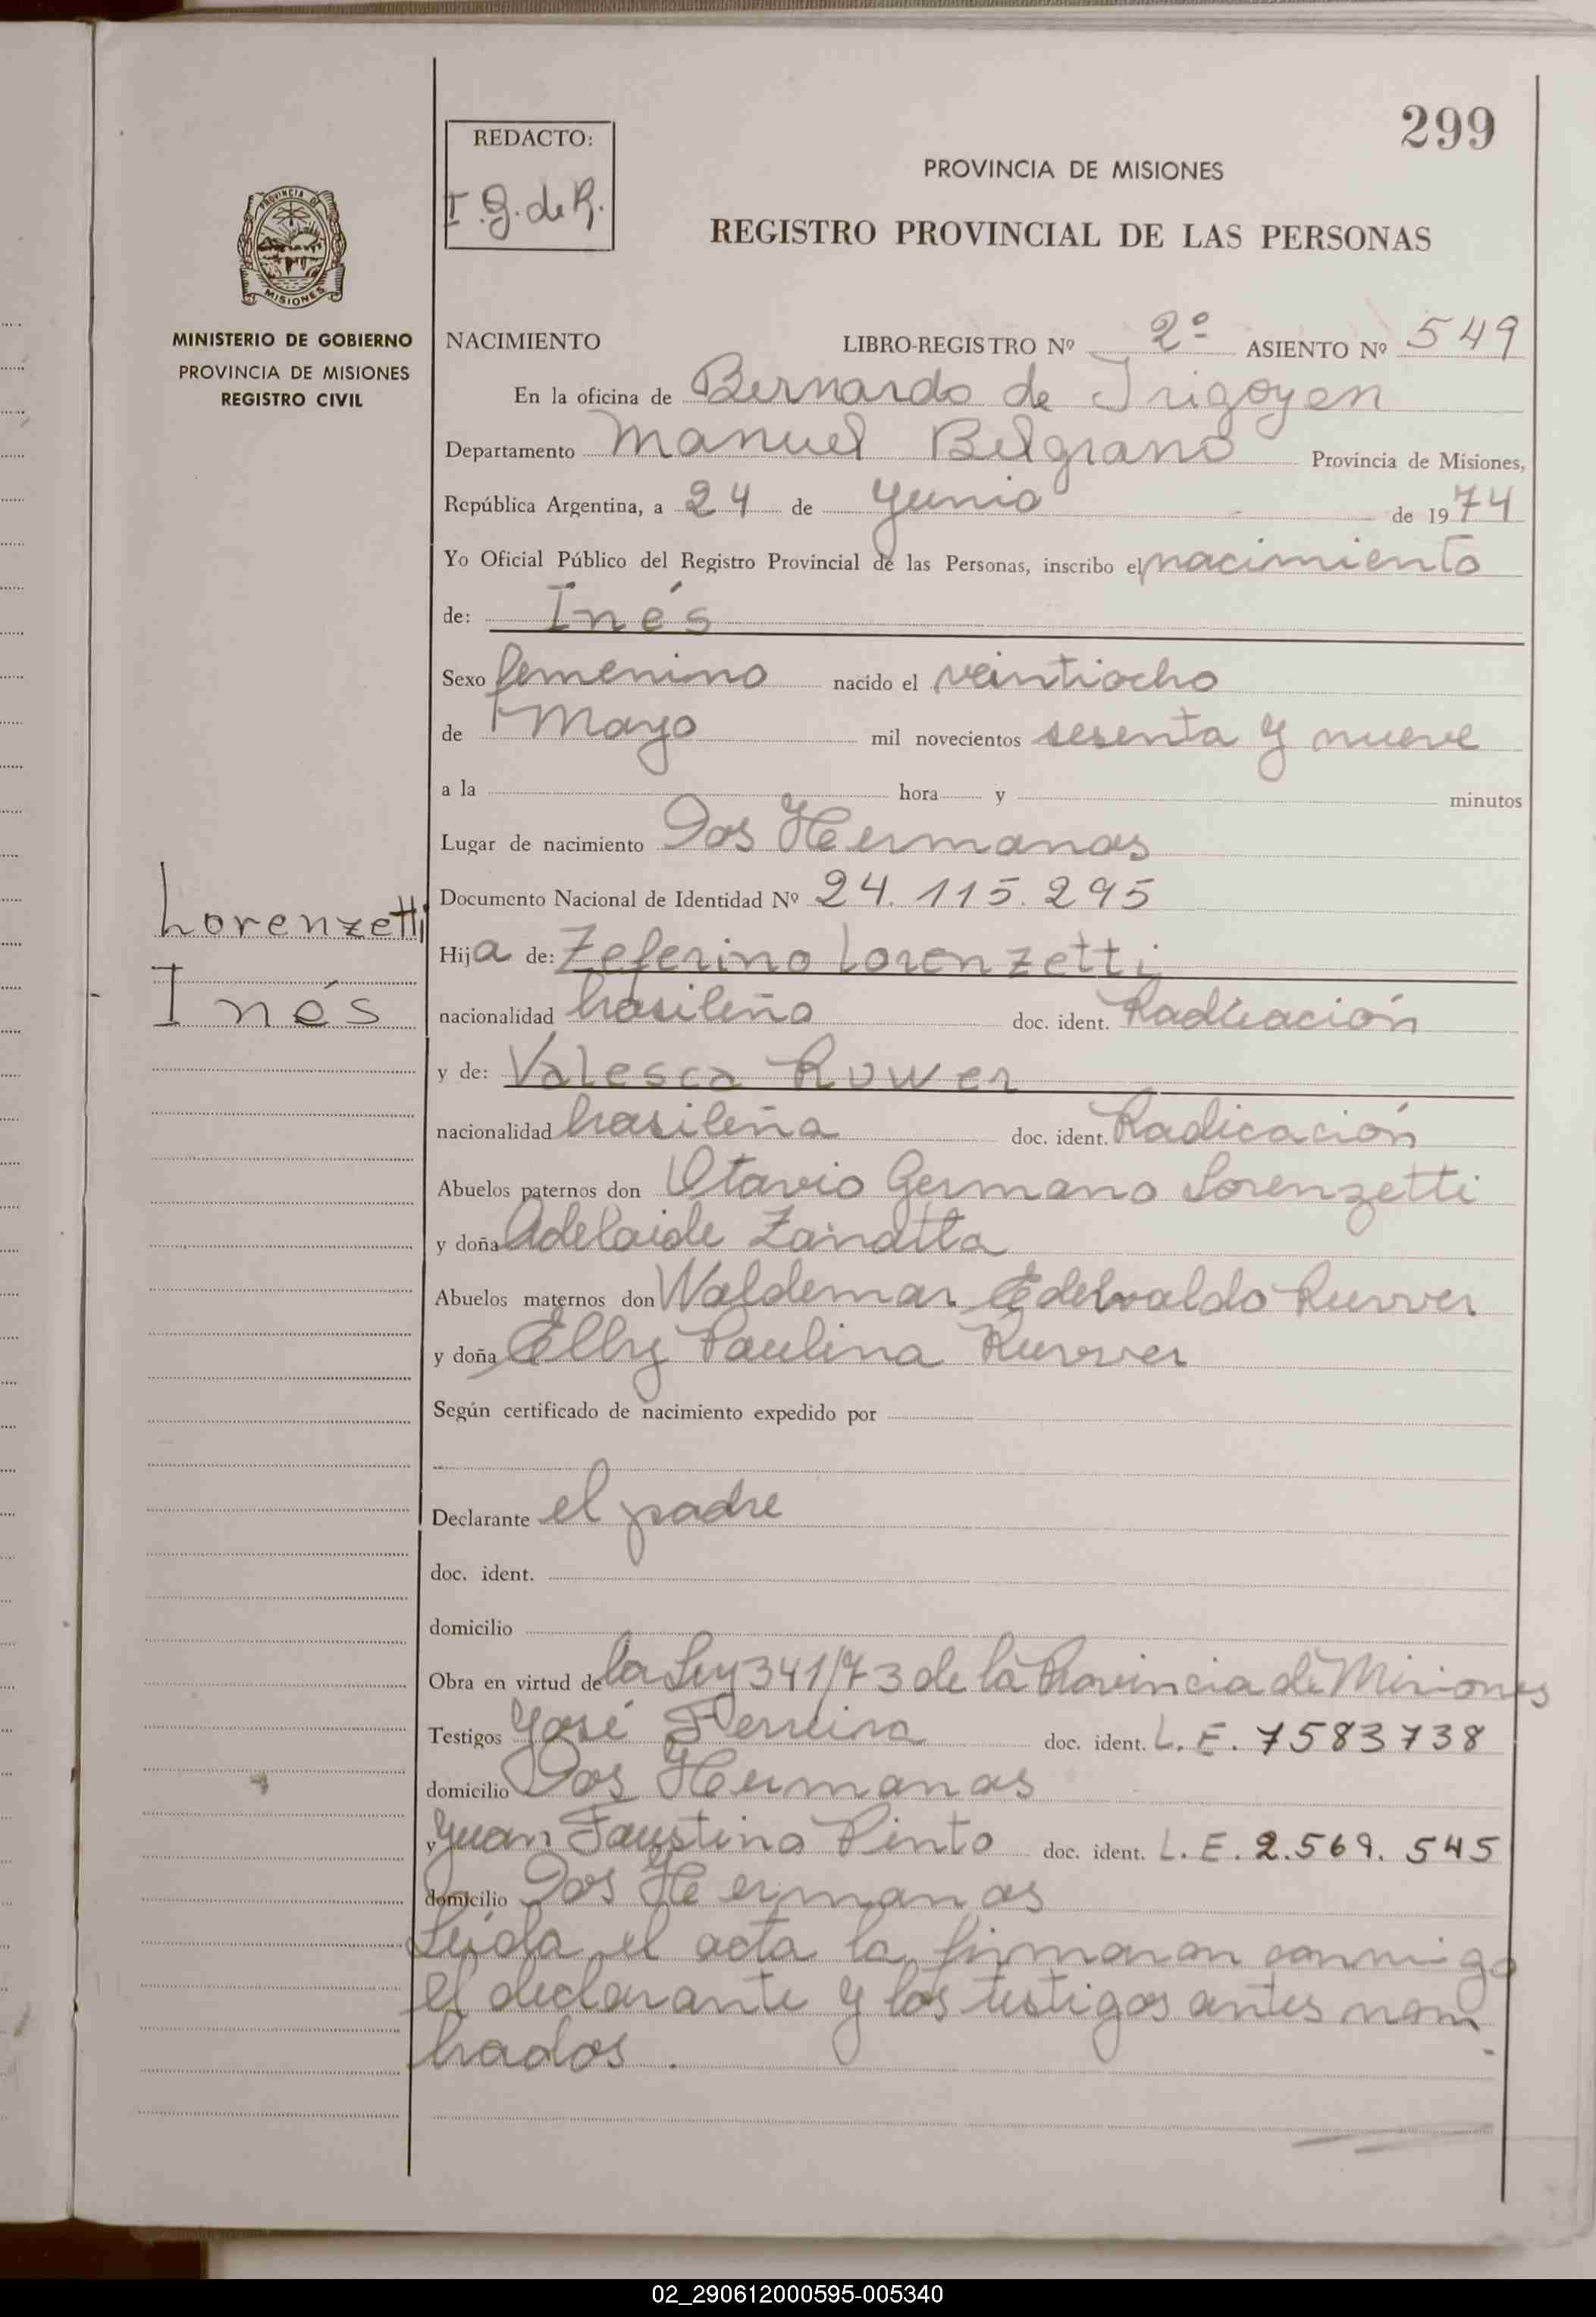 299
REDACTO:
I.G. de R.
PROVINCIA DE MISIONES
REGISTRO PROVINCIAL DE LAS PERSONAS
PROVINCIA DE
MISIONES
MINISTERIO DE GOBIERNO
PROVINCIA DE MISIONES
REGISTRO CIVIL
Lorenzetti
Inés
NACIMIENTO LIBRO-REGISTRO Nº 2º ASIENTO Nº 549
En la oficina de Bernardo de Irigoyen
Departamento Manuel Belgrano Provincia de Misiones,
República Argentina, a 24 de Junio de 1974
Yo Oficial Público del Registro Provincial de las Personas, inscribo el nacimiento
de: Inés
Sexo femenino nacido el veintiocho
de Mayo mil novecientos sesenta y nueve
a la hora y minutos
Lugar de nacimiento Dos Hermanas
Documento Nacional de Identidad Nº 24.115.295
Hija de: Zeferino Lorenzetti
nacionalidad brasileña doc. ident. Radicación
y de: Valesca Ruwer
nacionalidad brasileña doc. ident. Radicación
Abuelos paternos don Otavio Germano Lorenzetti
y doña Adelaide Zanatta
Abuelos maternos don Waldemar Edelvaldo Ruwer
y doña Elly Paulina Ruwer
Según certificado de nacimiento expedido por
Declarante el padre
doc. ident.
domicilio
Obra en virtud de la Ley 341/73 de la Provincia de Misiones
Testigos José Ferreira doc. ident. L.E. 7583738
domicilio Dos Hermanas
y Juan Faustino Pinto doc. ident. L.E. 2.569.545
domicilio Dos Hermanas
Leída el acta la firmaron conmigo
el declarante y los testigos antes nom
brados.
02_290612000595-005340